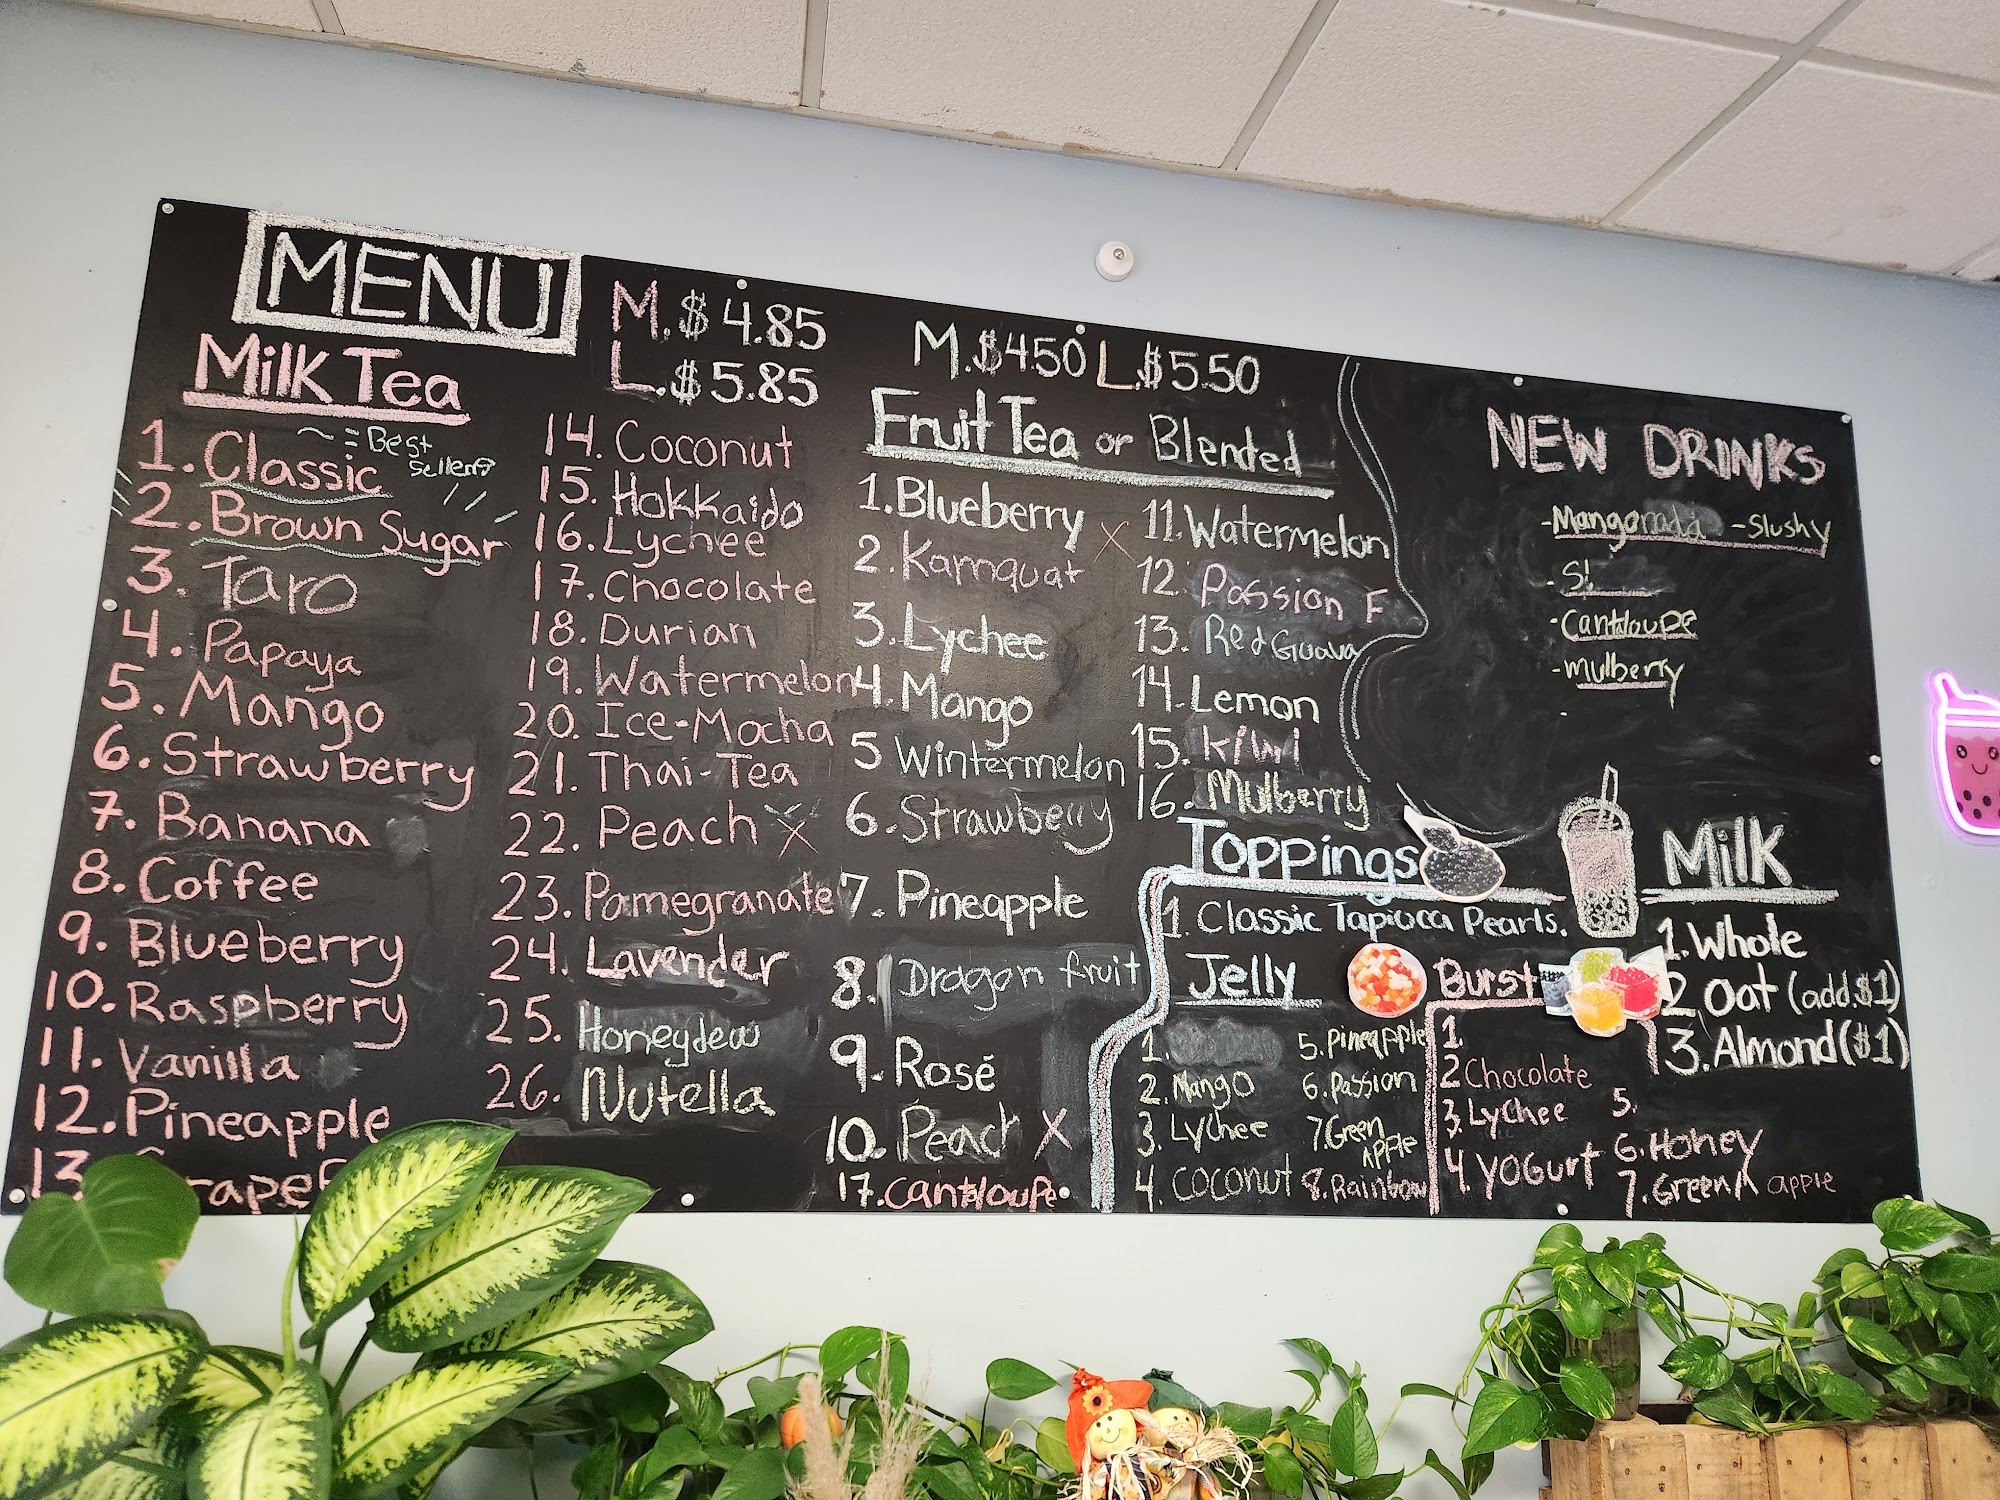 MENU
M. $4.85
L. $5.85
Milk Tea
~ = Best
Seller
1. Classic
2. Brown Sugar
3. Taro
4. Papaya
5. Mango
6. Strawberry
7. Banana
8. Coffee
9. Blueberry
10. Raspberry
11. Vanilla
12. Pineapple
13.
14. Coconut
15. Hokkaido
16. Lychee
17. Chocolate
18. Durian
19. Watermelon
20. Ice-Mocha
21. Thai-Tea
22. Peach X
23. Pomegranate
24. Lavender
25. Honeydew
26. Nutella
M. $4.50 L. $5.50
Fruit Tea or Blended
1. Blueberry
2. Kamquat X
3. Lychee
4. Mango
5 Wintermelon
6. Strawberry
7. Pineapple
8. Dragon fruit
9. Rosé
10. Peach X
17. Cantaloupe
11. Watermelon
12. Passion F
13. Red Guava
14. Lemon
15. kiwi
16. Mulberry
NEW DRINKS
-Mangonada -Slushy
-
-Cantaloupe
-mulberry
-
Toppings
1. Classic Tapioca Pearls.
Jelly
1.
2. Mango
3. Lychee
4. Coconut
5. Pineapple
6. Passion
7. Green Apple
8. Rainbow
Burst
1.
2 Chocolate
3. Lychee
4. Yogurt
5.
6. Honey
7. Green apple
Milk
1. Whole
2 Oat (add. $1)
3. Almond ($1)